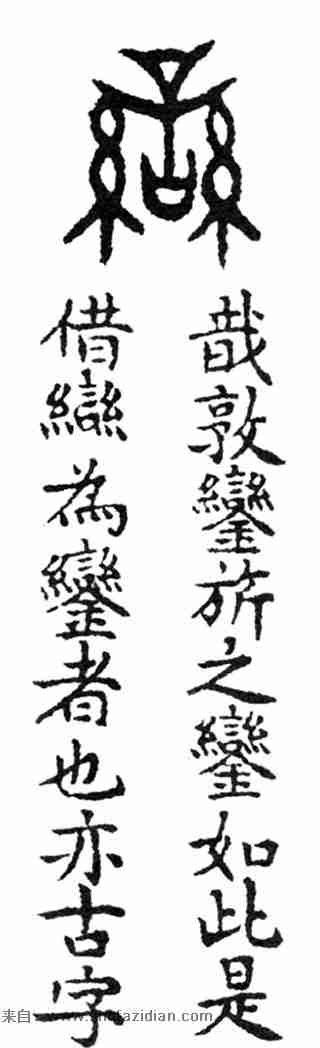 䜌
㦰敦鑾旂之鑾如此是
借䜌為鑾者也亦古字
来自: www.shufazidian.com